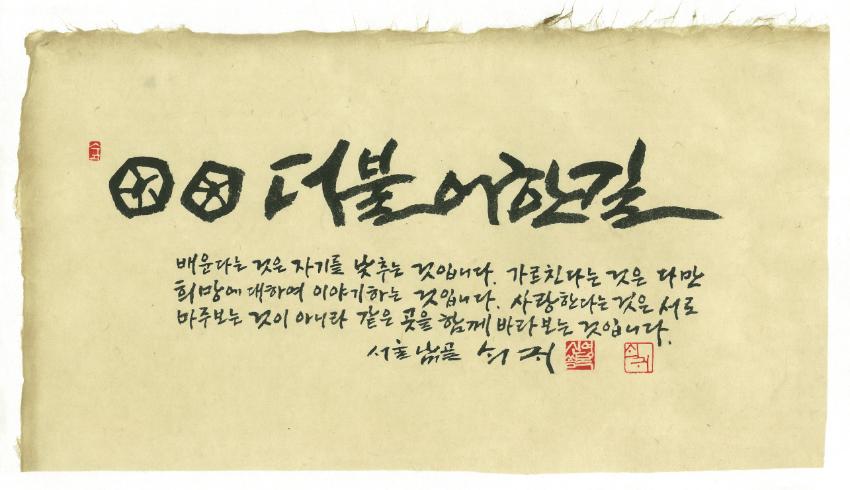 더불어한길
배운다는 것은 자기를 낮추는 것입니다. 가르친다는 것은 다만
희망에 대하여 이야기하는 것입니다. 사랑한다는 것은 서로
마주보는 것이 아니라 같은 곳을 함께 바라보는 것입니다.
서울